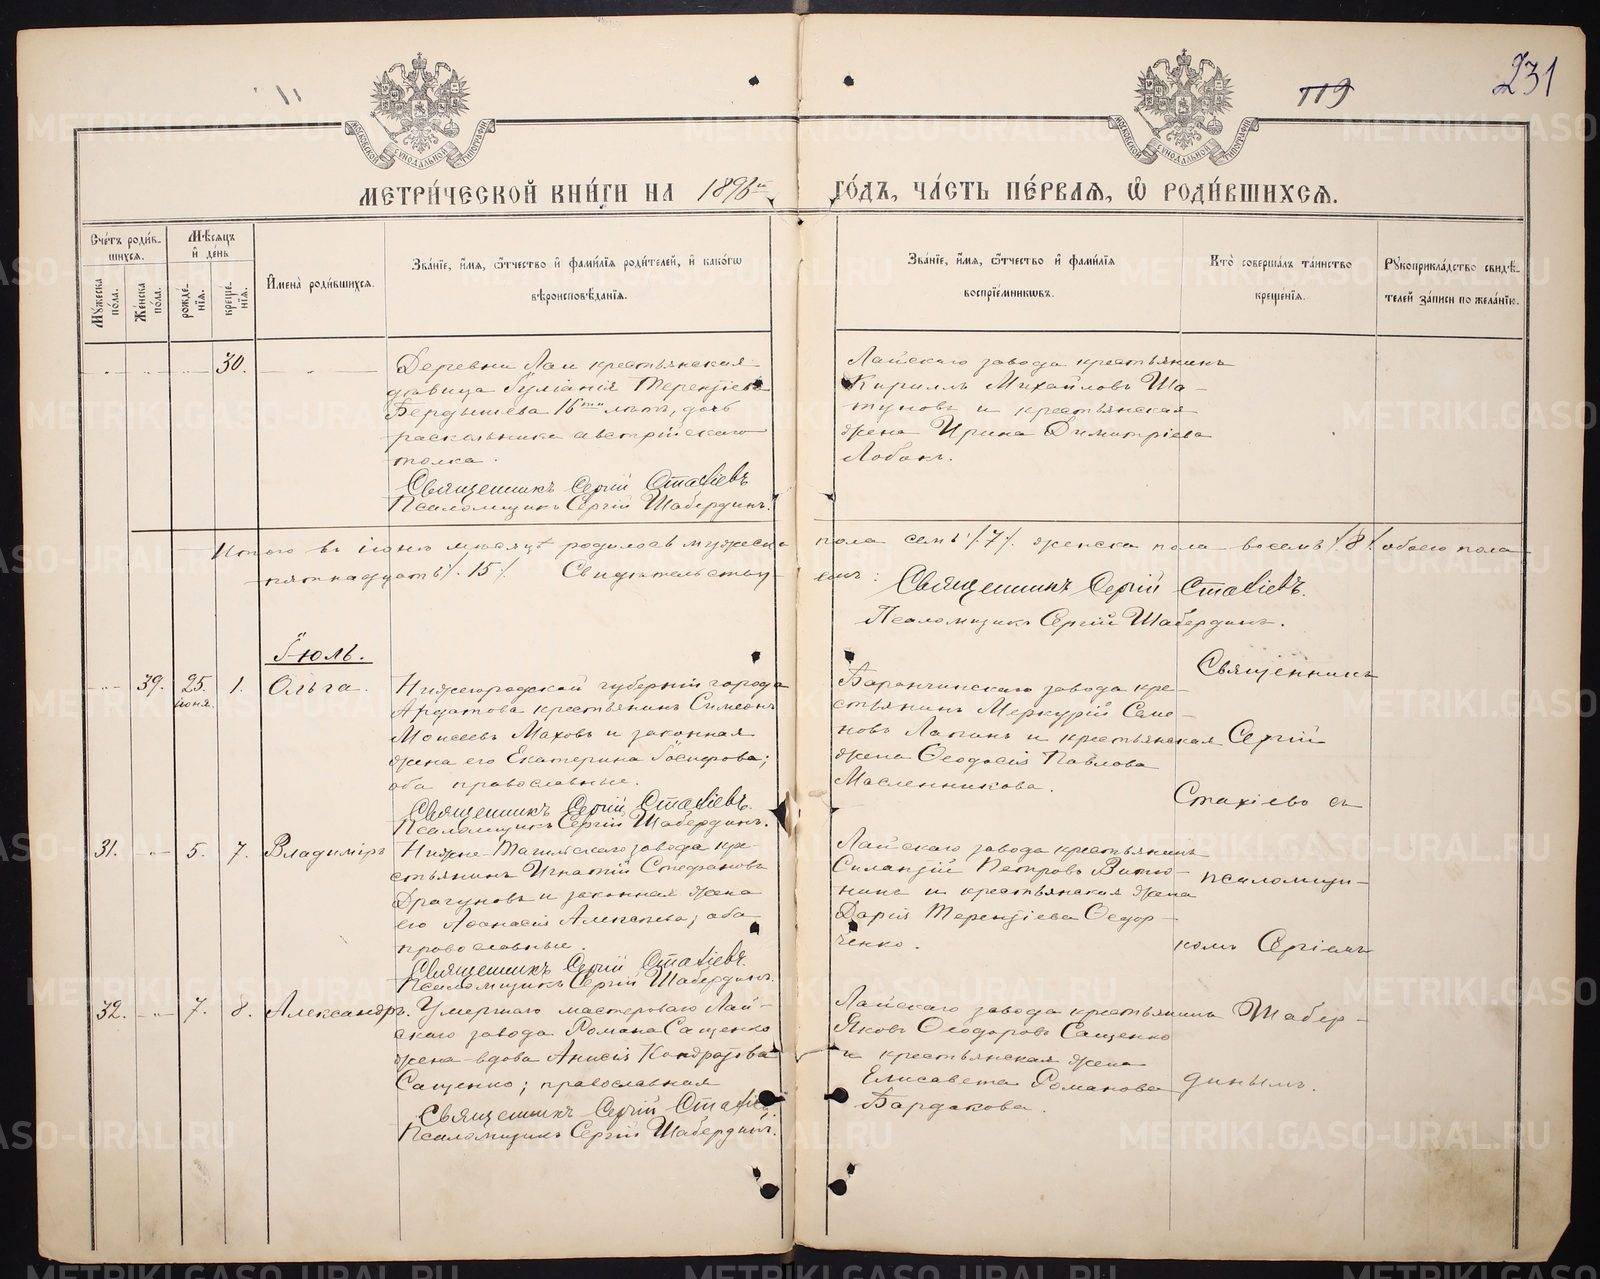 231
119
МЕТРИ́ЧЕСКОЙ КНИ́ГИ НА 1896й ГО́ДЪ, ЧА́СТЬ ПЕ́РВАЯ, Ѡ РОДИ́ВШИХСЯ.
МОСКОВСКОЙ СѴНОДАЛЬНОЙ ТИПОГРАФІИ
МОСКОВСКОЙ СѴНОДАЛЬНОЙ ТИПОГРАФІИ
Сче́тъ роди́в-
шихся.
Мꙋжеска по́ла.
Же́нска по́ла.
Мѣсяцъ
и҆ де́нь
рожде́-
нїя.
креще́-
нїя.
И҆мена̀ роди́вшихся.
Зва́нїе, и҆́мя, ѻ҆́тчество и҆ фами́лїя роди́телей, и҆ како́гѡ
вѣроисповѣ́данїя.
Зва́нїе, и҆́мя, ѻ҆́тчество и҆ фами́лїя
воспрїе́мникѡвъ.
Кто̀ соверша́лъ та́инство
креще́нїя.
Рꙋкоприкла́дство свидѣ́-
телей за́писи по жела́нїю.
30.
Деревни Лаи крестьянская
дѣвица Іуліанія Терентіева
Бердышева 16ти лѣтъ, дочь
раскольника австрійскаго
толка.
Священникъ Сергій Стахіевъ
Псаломщикъ Сергій Шабердинъ.
Лайскаго завода крестьянинъ
Кириллъ Михайловъ Ша-
туновъ и крестьянская
жена Ирина Димитріева
Лобокъ.
Итого въ іюнѣ мѣсяцѣ родилось мужеска пола семь /7/. женска пола восемь /8/ обоего пола
пятнадцать /15/. Свидѣтельству- емъ:
Священникъ Сергій Стахіевъ.
Псаломщикъ Сергій Шабердинъ.
Іюль.
39. 25. іюня. 1. Ольга.
Нижегородской губерніи города
Ардатова крестьянинъ Симеонъ
Моисеевъ Маховъ и законная
жена его Екатерина Іосифова;
оба православные.
Священникъ Сергій Стахіевъ.
Псаломщикъ Сергій Шабердинъ.
Баранчинскаго завода кре-
стьянинъ Меркурій Семе-
новъ Лапинъ и крестьянская
жена Ѳеодосія Павлова
Масленникова.
Священникъ
Сергій
Стахіевъ съ
псаломщи-
комъ Сергіемъ
Шабер-
динымъ.
31. 5. 7. Владиміръ
Нижне-Тагильскаго завода кре-
стьянинъ Игнатій Стефановъ
Драгуновъ и законная жена
его Аѳанасія Алексѣева; оба
православные.
Священникъ Сергій Стахіевъ.
Псаломщикъ Сергій Шабердинъ.
Лайскаго завода крестьянинъ
Силантій Петровъ Витю-
нинъ и крестьянская жена
Дарія Терентіева Ѳедор-
ченко.
32. 7. 8. Александръ.
Умершаго мастероваго Лай-
скаго завода Романа Сащенко
жена-вдова Анисія Кондратова
Сащенко; православная
Священникъ Сергій Стахіевъ
Псаломщикъ Сергій Шабердинъ.
Лайскаго завода крестьянинъ
Яковъ Ѳеодоровъ Сащенко
и крестьянская жена
Елисавета Романова
Бардакова.
METRIKI.GASO-URAL.RU